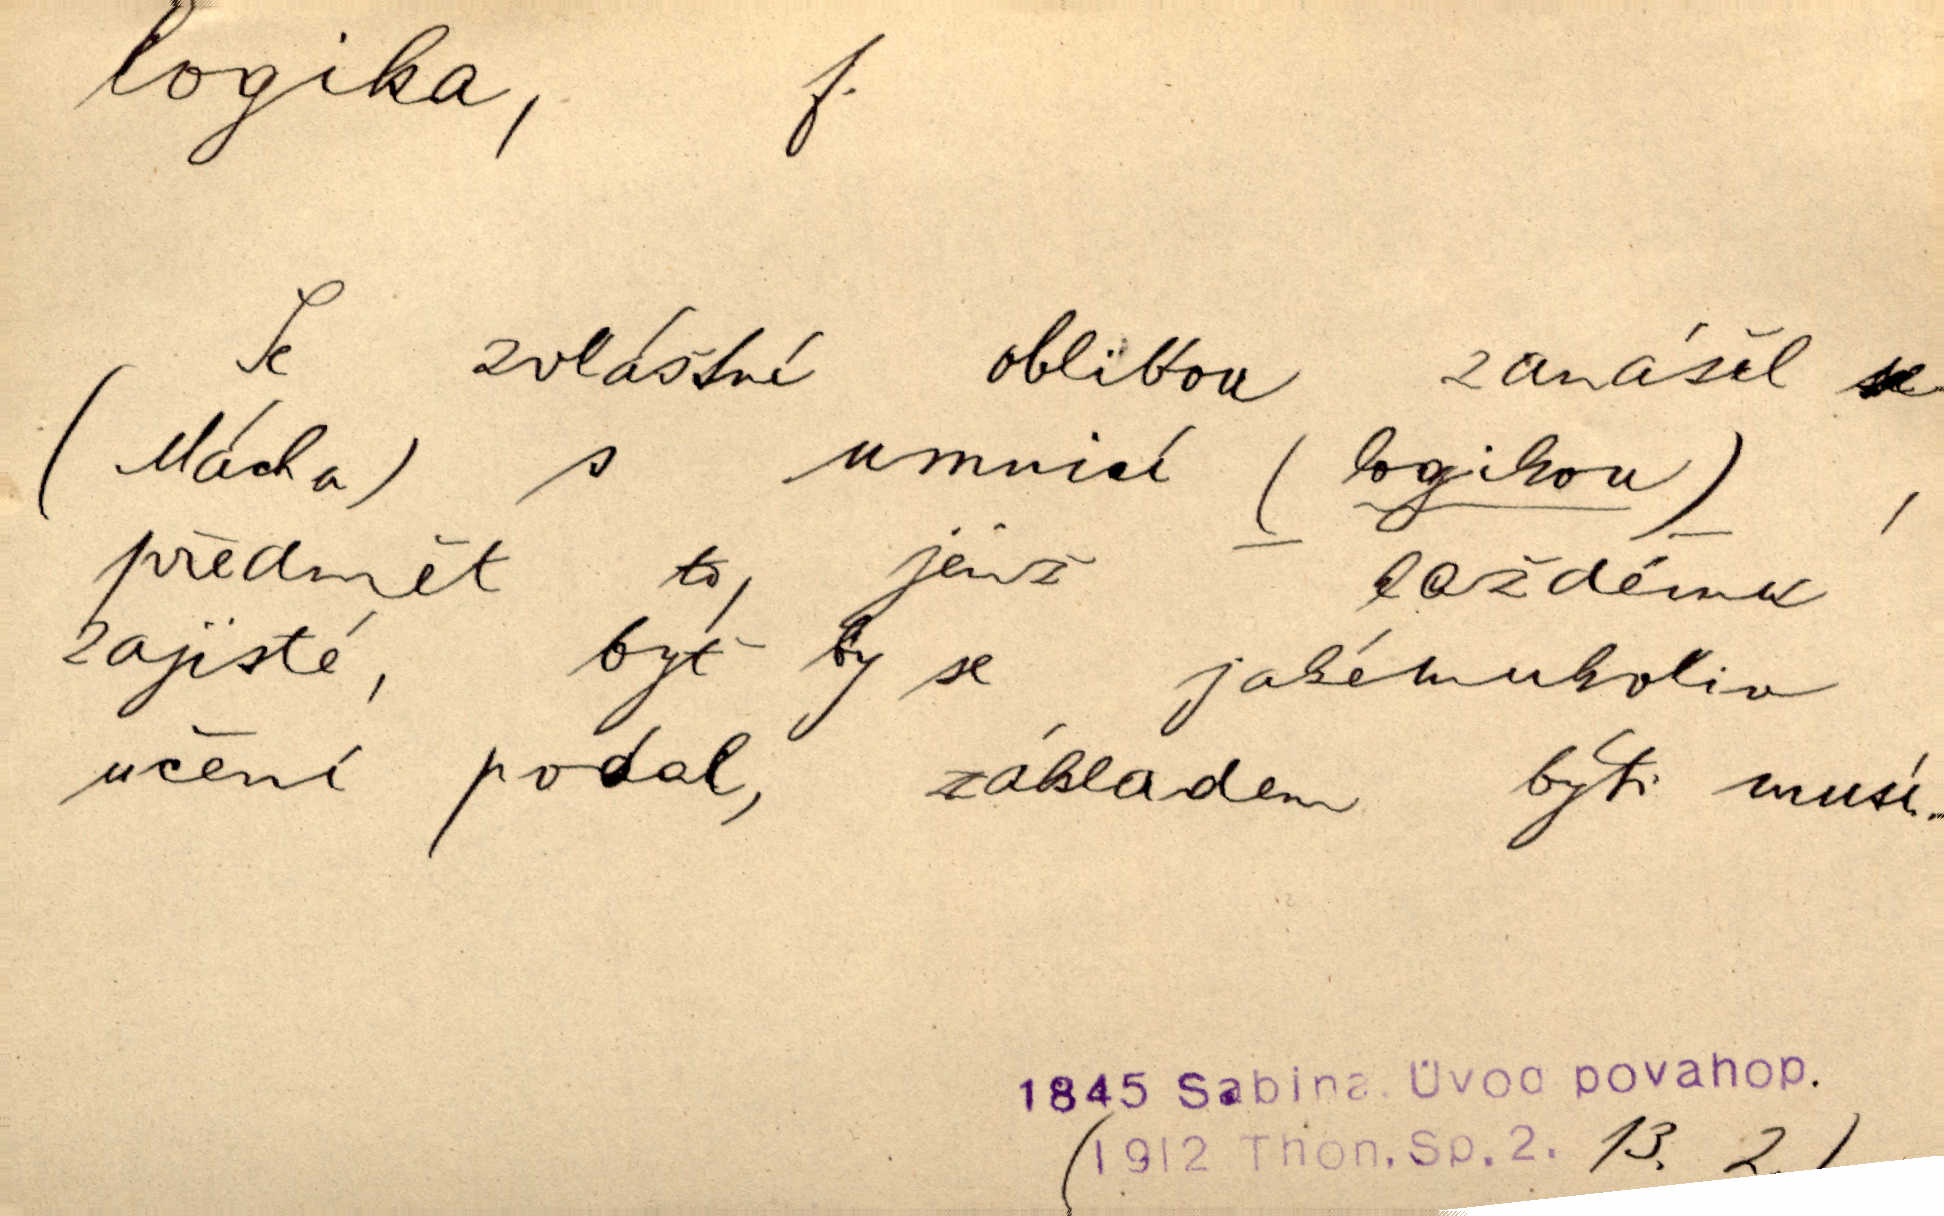 logika, f.
Se zvláštní oblibou zanášel se
(Mácha) s umnicí (logikou),
předmět to, jenž každému
zajisté, byť by se jakémukoliv
učení podal, základem býti musí..
1845 Sabina. Úvod povahop.
(1912 Thon. Sp. 2. 13. 2.)